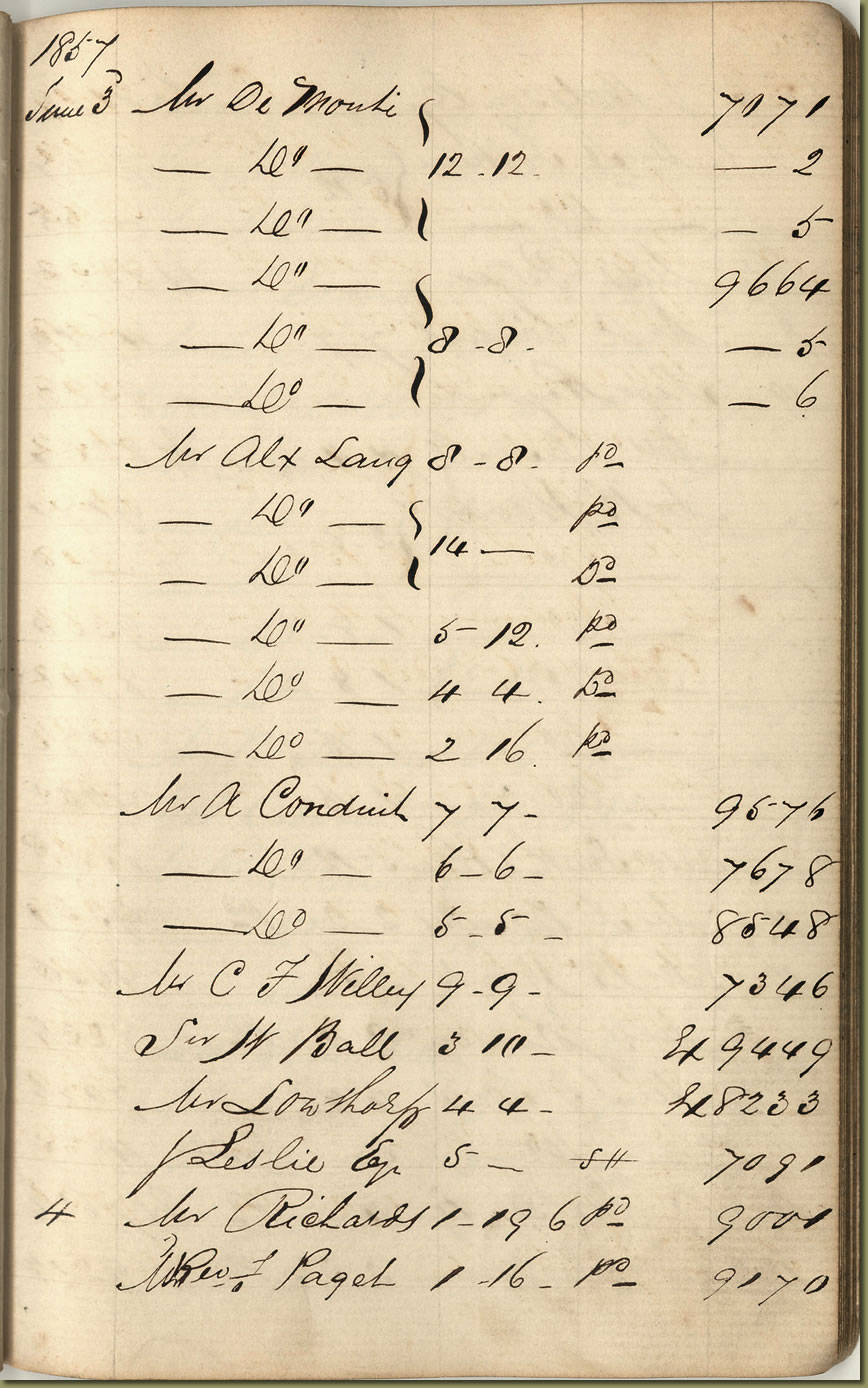 1857
June 3 Mr De Monti 7071
— Do — 12 . 12 . — 2
— Do — — 5
— Do — 9664
— Do — 8 - 8 - — 5
— Do — — 6
Mr Alx Lang 8 - 8 - pd
— Do — pd
— Do — 14 — Do
— Do — 5 - 12 . pd
— Do — 4 4 . Do
— Do — 2 16 . pd
Mr A Conduit 7 7 - 9576
— Do — 6 - 6 - 7678
— Do 5 - 5 - 8548
Mr C F Willey 9 - 9 - 7346
Sir W Ball 3 10 - 9449
Mr Lowthorp 4 4 - 8233
J Leslie Esq 5 — 7091
4 Mr Richards 1 - 19 6 pd 9001
Rev F Paget 1 - 16 - pd 9170